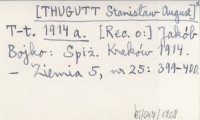 [THUGUTT Stanisław August]
T-t. 1914 a. [Rec. o:] Jakób
Bojko: Spiż. Kraków 1914.
– Ziemia 5, nr 25: 399-400.